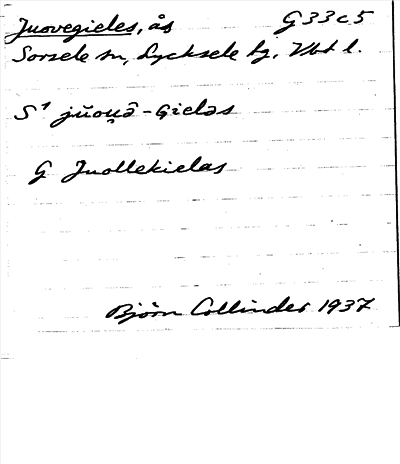 Juovegieles, ås G33c5
Sorsele sn, Lycksele lg, Vbt l.
S¹ jŭou̯ȃ-Gieləs
G Juollekielas
Björn Collinder 1937